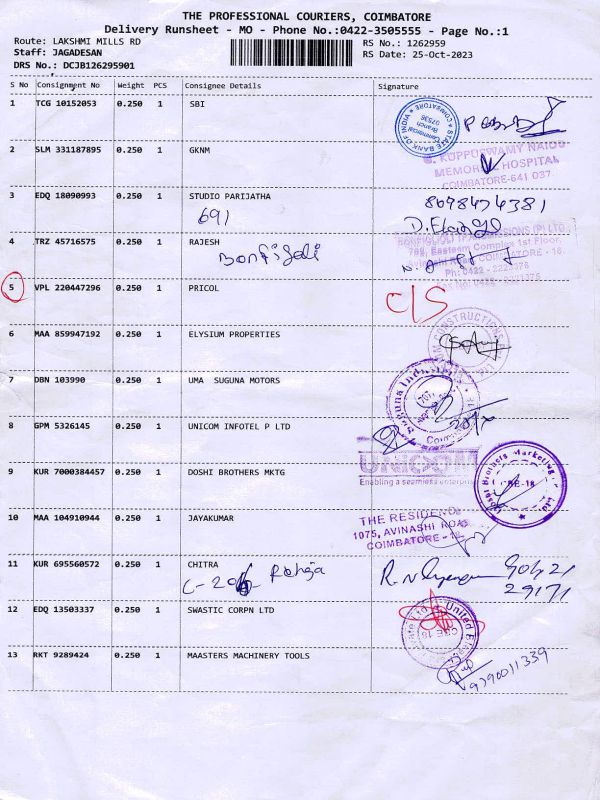 THE PROFESSIONAL COURIERS, COIMBATORE
Delivery Runsheet - MO - Phone No.:0422-3505555 - Page No.:1
Route: LAKSHMI MILLS RD
RS No.: 1262959
Staff: JAGADESAN
RS Date: 25-Oct-2023
DRS No.: DCJB126295901
S No Consignment No Weight PCS Consignee Details Signature
1 TCG 10152053 0.250 1 SBI
STATE BANK OF INDIA COIMBATORE
Commercial Branch 07536
2 SLM 331187895 0.250 1 GKNM
G. KUPPUSWAMY NAIDU
MEMORIAL HOSPITAL
COIMBATORE-641 037
3 EDQ 18090993 0.250 1 STUDIO PARIJATHA
691
8698474381
4 TRZ 45716575 0.250 1 RAJESH
Bonfiglioli
5 VPL 220447296 0.250 1 PRICOL
C/S
6 MAA 859947192 0.250 1 ELYSIUM PROPERTIES
7 DBN 103990 0.250 1 UMA SUGUNA MOTORS
8 GPM 5326145 0.250 1 UNICOM INFOTEL P LTD
UNICOM
Enabling a seamless enterprise
9 KUR 7000384457 0.250 1 DOSHI BROTHERS MKTG
Doshi Brothers Marketing
CBE-18
10 MAA 104910944 0.250 1 JAYAKUMAR
THE RESIDENCY
1075, AVINASHI ROAD
COIMBATORE - 18.
11 KUR 695560572 0.250 1 CHITRA
12 EDQ 13503337 0.250 1 SWASTIC CORPN LTD
CBE 18
13 RKT 9289424 0.250 1 MAASTERS MACHINERY TOOLS
9790011339